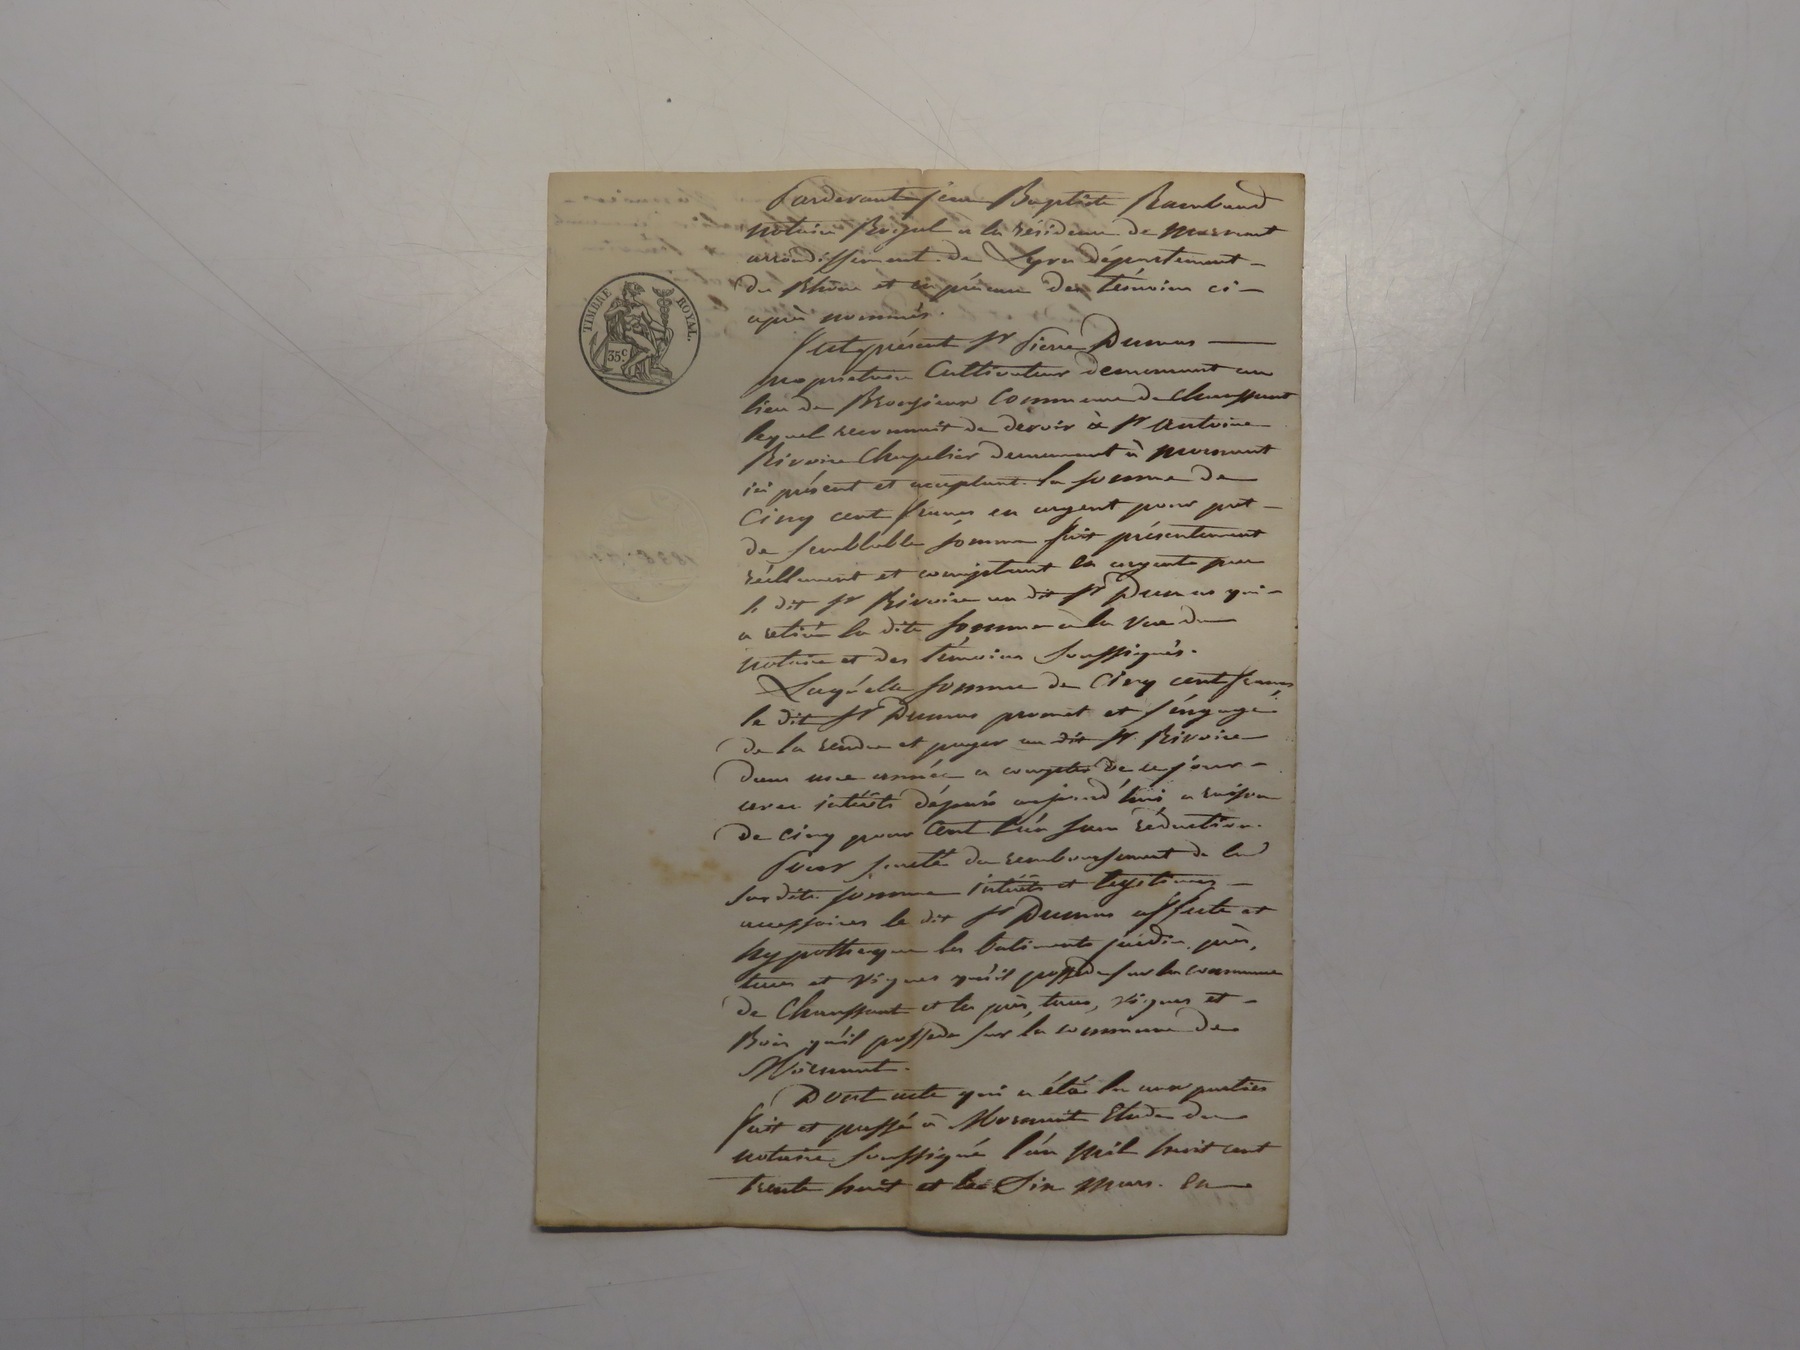 Pardevant Jean Baptiste Rambaud
notaire Royal à la résidence de Mornant
arrondissement de Lyon département
du Rhône et en présence des témoins ci-
après nommés.
TIMBRE ROYAL.
35c.
Fut présent Sr Pierre Dumas
propriétaire Cultivateur demeurant au
lieu de Commune de Chaussant
lequel reconnait de devoir à Sr Antoine
Rivoire Chapelier demeurant à Mornant
ici présent et acceptant la somme de
Cinq cent francs en argent pour pret
de semblable somme fait présentement
réellement et comptant en argent par
le dit Sr Rivoire au dit Sr Dumas qui
a retiré la dite somme à la vue du
notaire et des témoins soussignés.
Laquelle somme de Cinq cent francs
le dit Sr Dumas promet et s'engage
de la rendre et payer au dit Sr Rivoire
dans une année a compter de ce jour
avec intérêts dépuis aujourd'hui a raison
de cinq pour Cent l'an sans réduction.
Pour sureté du remboursement de la
susdite somme intérêts et légitimes
accessoires le dit Sr Dumas affecte et
hypotheque les batiments jardin, près,
terres et vignes qu'il possede sur la commune
de Chaussant et les près, terres, vignes et
Bois qu'il possede sur la commune de
Mornant.
Dont acte qui a été lu aux parties
fait et passé à Mornant Etude du
notaire soussigné l'an mil huit cent
trente huit et le Six Mars. En